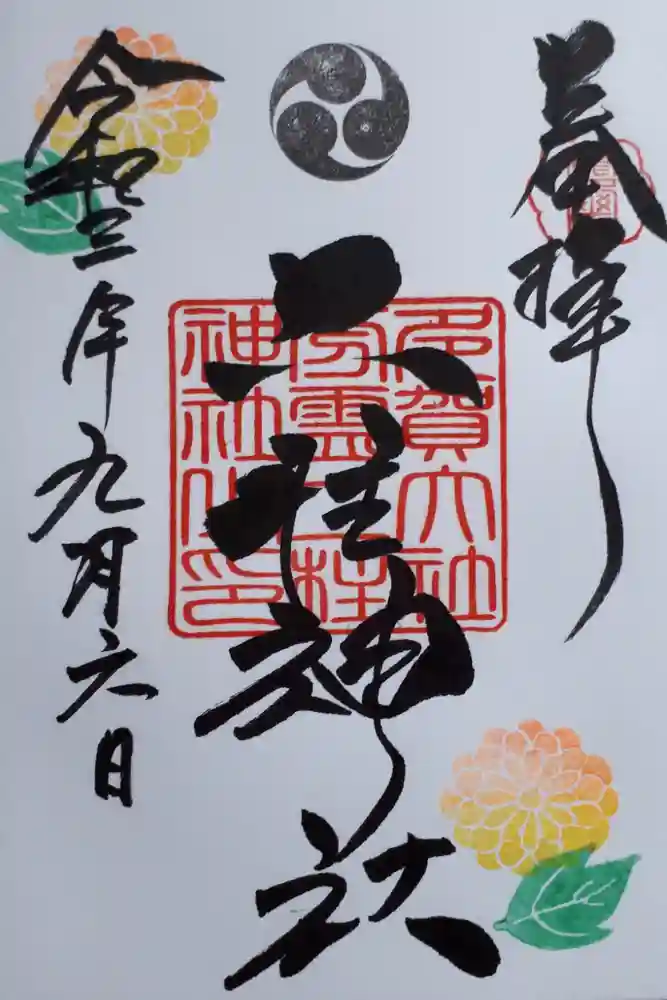 奉拝
二柱神社
多賀大社
分霊二柱
神社之印
令和三年九月六日